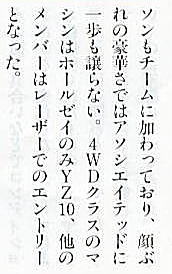 ソンもチームに加わっており、顔ぶ
れの豪華さではアソシエイテッドに
一歩も譲らない。4WDクラスのマ
シンはホールゼイのみYZ10、他の
メンバーはレーザーでのエントリー
となった。